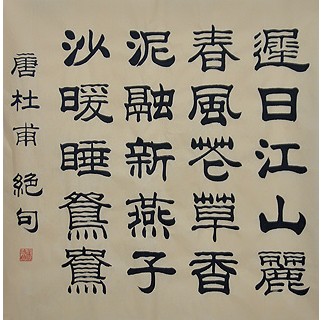 遲日江山麗
春風花草香
泥融新燕子
沙暖睡鴛鴦
唐杜甫絕句